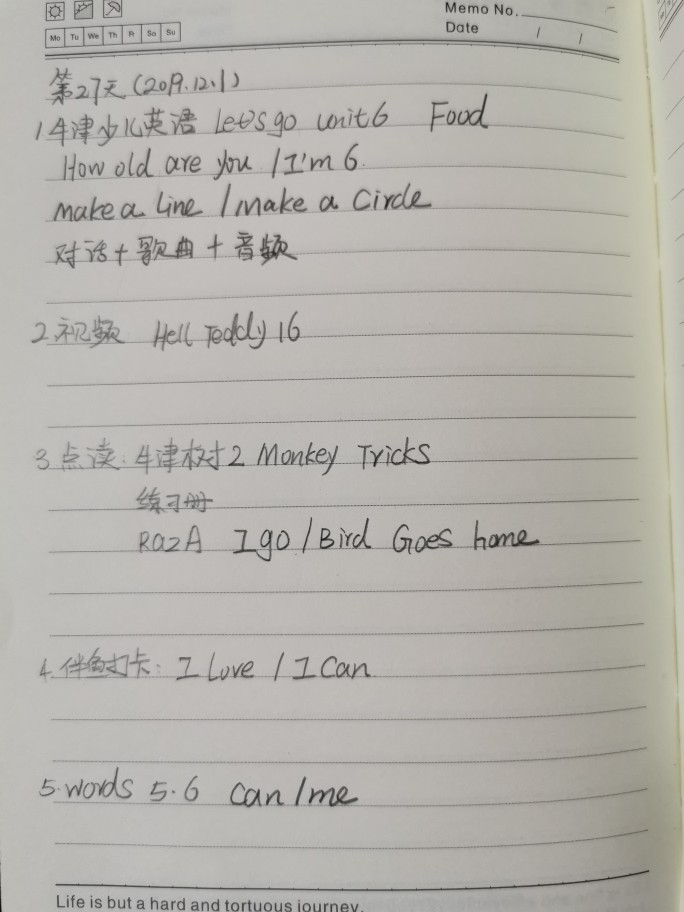 Memo No.
Date / /
Mo Tu We Th Fr Sa Su
第27天(2019.12.1)
1.牛津少儿英语 Let's go unit6 Food
How old are you / I'm 6.
make a Line / make a Circle
对话+歌曲+音频
2.视频 Hell Teddy 16
3.点读:牛津树2 Monkey Tricks
练习册
RazA I go / Bird Goes home
4.伴鱼打卡: I Love / I Can
5.words 5.6 can/me
Life is but a hard and tortuous journey.